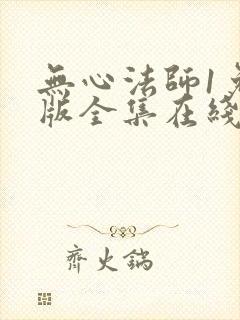 無心法師1
版全集在綫
齊火鍋